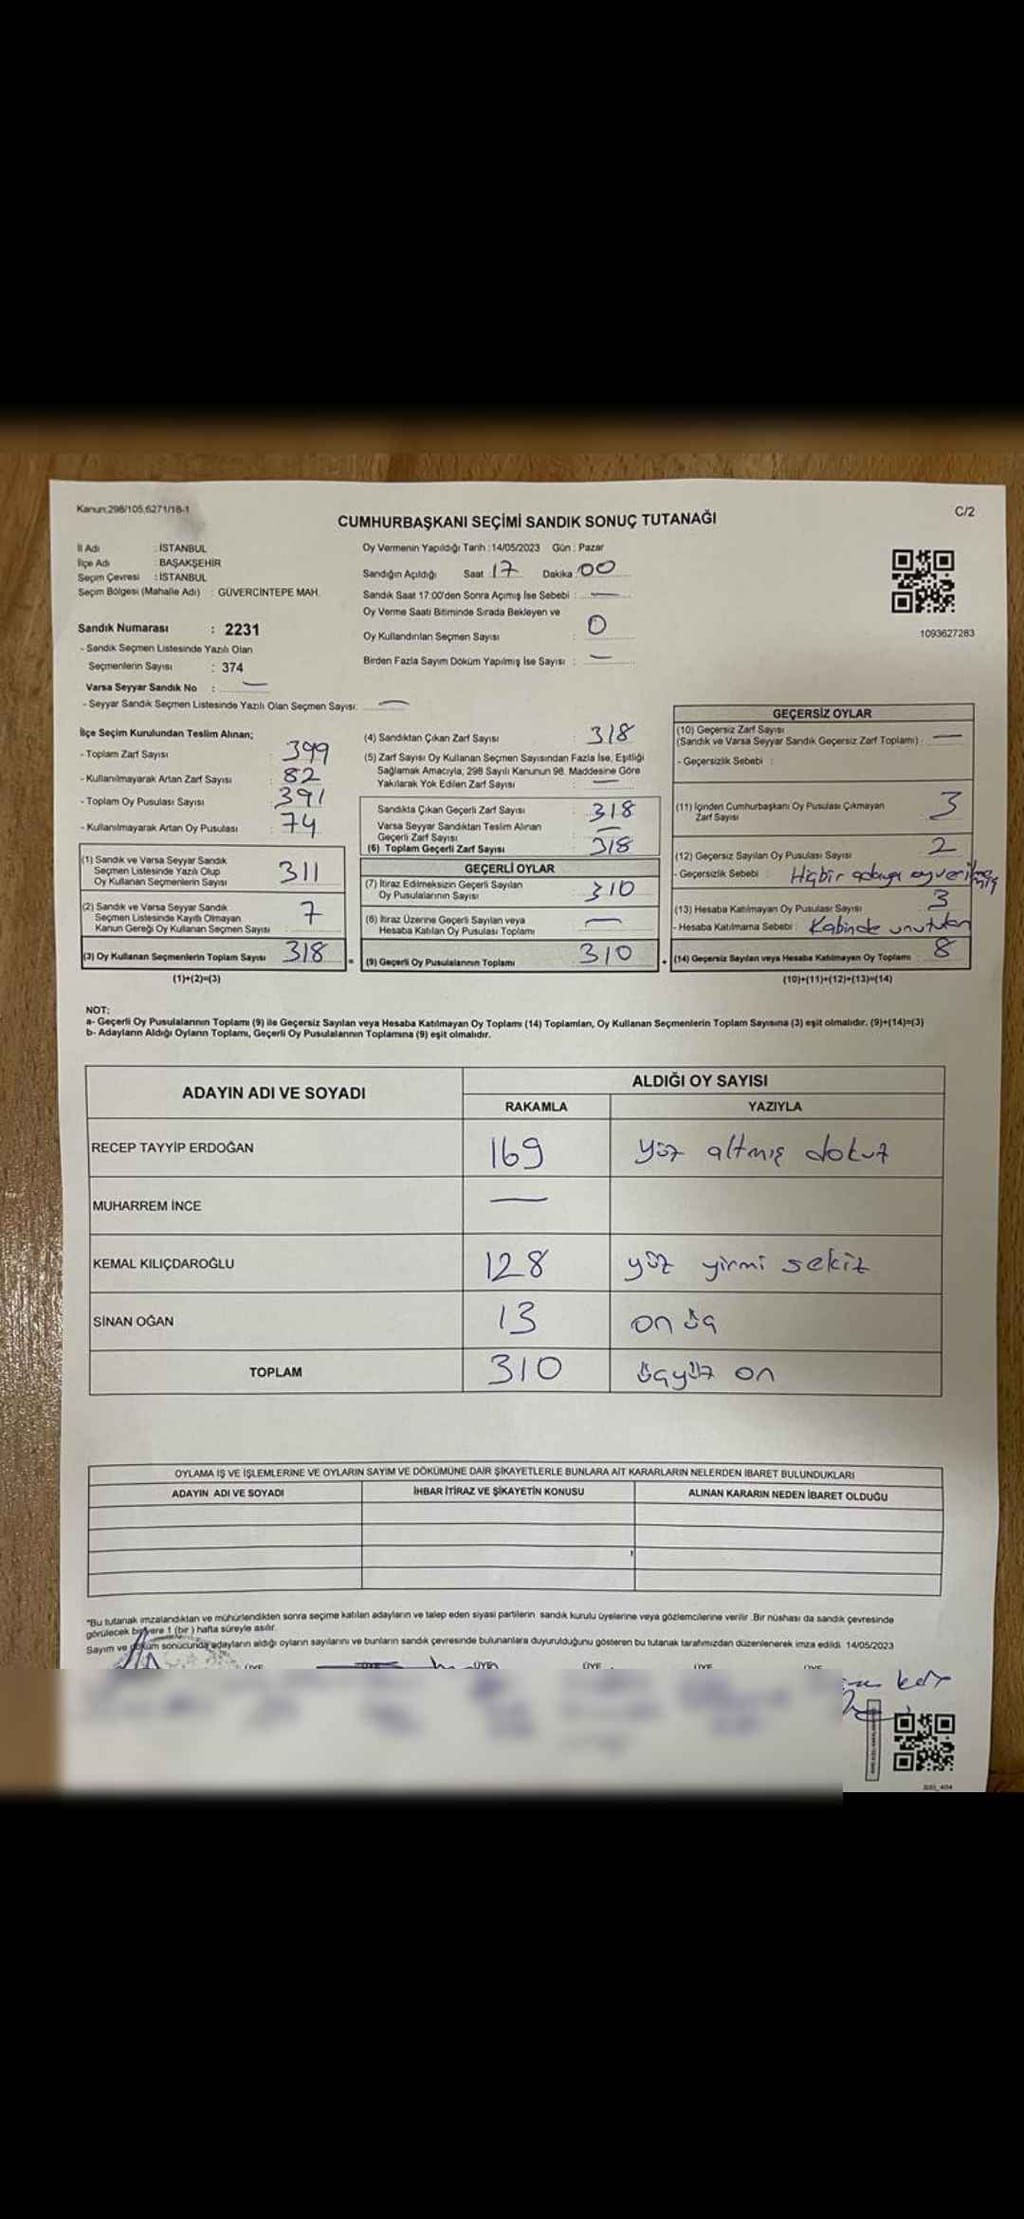 Kanun:298/105,6271/18-1
C/2
CUMHURBAŞKANI SEÇİMİ SANDIK SONUÇ TUTANAĞI
İl Adı : İSTANBUL
İlçe Adı : BAŞAKŞEHİR
Seçim Çevresi : İSTANBUL
Seçim Bölgesi (Mahalle Adı) : GÜVERCİNTEPE MAH.
Sandık Numarası : 2231
- Sandık Seçmen Listesinde Yazılı Olan
Seçmenlerin Sayısı : 374
Varsa Seyyar Sandık No : —
- Seyyar Sandık Seçmen Listesinde Yazılı Olan Seçmen Sayısı: —
Oy Vermenin Yapıldığı Tarih :14/05/2023 Gün : Pazar
Sandığın Açıldığı Saat 17 Dakika :00
Sandık Saat 17:00'den Sonra Açımış İse Sebebi : —
Oy Verme Saati Bitiminde Sırada Bekleyen ve
Oy Kullandırılan Seçmen Sayısı : 0
Birden Fazla Sayım Döküm Yapılmış İse Sayısı : —
1093627283
İlçe Seçim Kurulundan Teslim Alınan;
- Toplam Zarf Sayısı : 399
- Kullanılmayarak Artan Zarf Sayısı : 82
- Toplam Oy Pusulası Sayısı : 391
- Kullanılmayarak Artan Oy Pusulası : 74
(1) Sandık ve Varsa Seyyar Sandık
Seçmen Listesinde Yazılı Olup
Oy Kullanan Seçmenlerin Sayısı : 311
(2) Sandık ve Varsa Seyyar Sandık
Seçmen Listesinde Kayıtlı Olmayan
Kanun Gereği Oy Kullanan Seçmen Sayısı : 7
(3) Oy Kullanan Seçmenlerin Toplam Sayısı 318
(1)+(2)=(3)
(4) Sandıktan Çıkan Zarf Sayısı : 318
(5) Zarf Sayısı Oy Kullanan Seçmen Sayısından Fazla İse, Eşitliği
Sağlamak Amacıyla, 298 Sayılı Kanunun 98. Maddesine Göre
Yakılarak Yok Edilen Zarf Sayısı : —
Sandıkta Çıkan Geçerli Zarf Sayısı : 318
Varsa Seyyar Sandıktan Teslim Alınan
Geçerli Zarf Sayısı : —
(6) Toplam Geçerli Zarf Sayısı : 318
GEÇERLİ OYLAR
(7) İtiraz Edilmeksizin Geçerli Sayılan
Oy Pusulalarının Sayısı : 310
(8) İtiraz Üzerine Geçerli Sayılan veya
Hesaba Katılan Oy Pusulası Toplamı : —
= (9) Geçerli Oy Pusulalarının Toplamı : 310
GEÇERSİZ OYLAR
(10) Geçersiz Zarf Sayısı
(Sandık ve Varsa Seyyar Sandık Geçersiz Zarf Toplamı) : —
- Geçersizlik Sebebi :
(11) İçinden Cumhurbaşkanı Oy Pusulası Çıkmayan
Zarf Sayısı : 3
(12) Geçersiz Sayılan Oy Pusulası Sayısı : 2
- Geçersizlik Sebebi : Hiçbir adaya oy verilmemiş
(13) Hesaba Katılmayan Oy Pusulası Sayısı : 3
- Hesaba Katılmama Sebebi : Kabinde unutulan
+ (14) Geçersiz Sayılan veya Hesaba Katılmayan Oy Toplamı : 8
(10)+(11)+(12)+(13)=(14)
NOT:
a- Geçerli Oy Pusulalarının Toplamı (9) ile Geçersiz Sayılan veya Hesaba Katılmayan Oy Toplamı (14) Toplamları, Oy Kullanan Seçmenlerin Toplam Sayısına (3) eşit olmalıdır. (9)+(14)=(3)
b- Adayların Aldığı Oyların Toplamı, Geçerli Oy Pusulalarının Toplamına (9) eşit olmalıdır.
ADAYIN ADI VE SOYADI ALDIĞI OY SAYISI
RAKAMLA YAZIYLA
RECEP TAYYİP ERDOĞAN 169 yüz altmış dokuz
MUHARREM İNCE —
KEMAL KILIÇDAROĞLU 128 yüz yirmi sekiz
SİNAN OĞAN 13 on üç
TOPLAM 310 üçyüz on
OYLAMA İŞ VE İŞLEMLERİNE VE OYLARIN SAYIM VE DÖKÜMÜNE DAİR ŞİKAYETLERLE BUNLARA AİT KARARLARIN NELERDEN İBARET BULUNDUKLARI
ADAYIN ADI VE SOYADI İHBAR İTİRAZ VE ŞİKAYETİN KONUSU ALINAN KARARIN NEDEN İBARET OLDUĞU
*Bu tutanak imzalandıktan ve mühürlendikten sonra seçime katılan adayların ve talep eden siyasi partilerin sandık kurulu üyelerine veya gözlemcilerine verilir. Bir nüshası da sandık çevresinde
görülecek bir yere 1 (bir) hafta süreyle asılır.
Sayım ve döküm sonucunda adayların aldığı oyların sayılarını ve bunların sandık çevresinde bulunanlara duyurulduğunu gösteren bu tutanak tarafımızdan düzenlenerek imza edildi. 14/05/2023
ÜYE ÜYE ÜYE ÜYE ÜYE